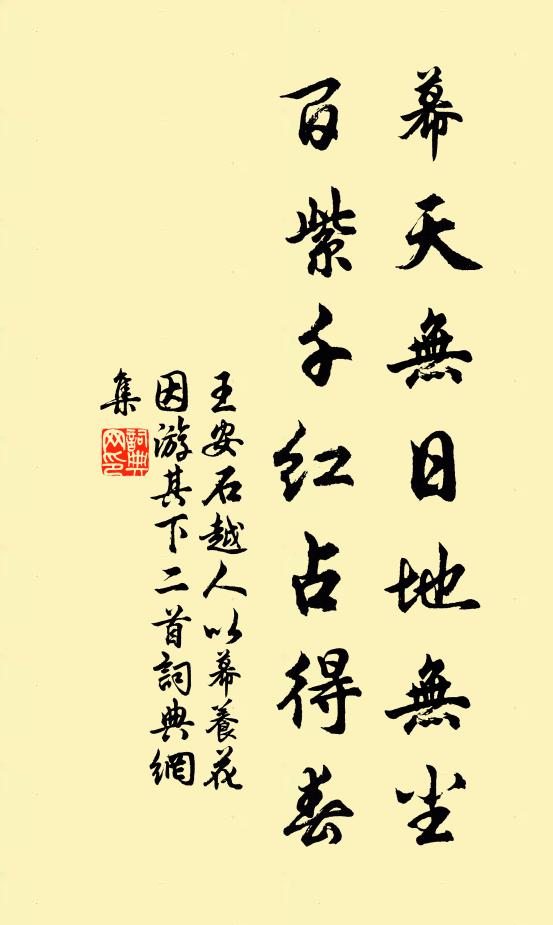 幕天無日地無尘
百紫千红占得春
王安石越人以幕養花
因游其下二首詞典網
集
詞典
网印